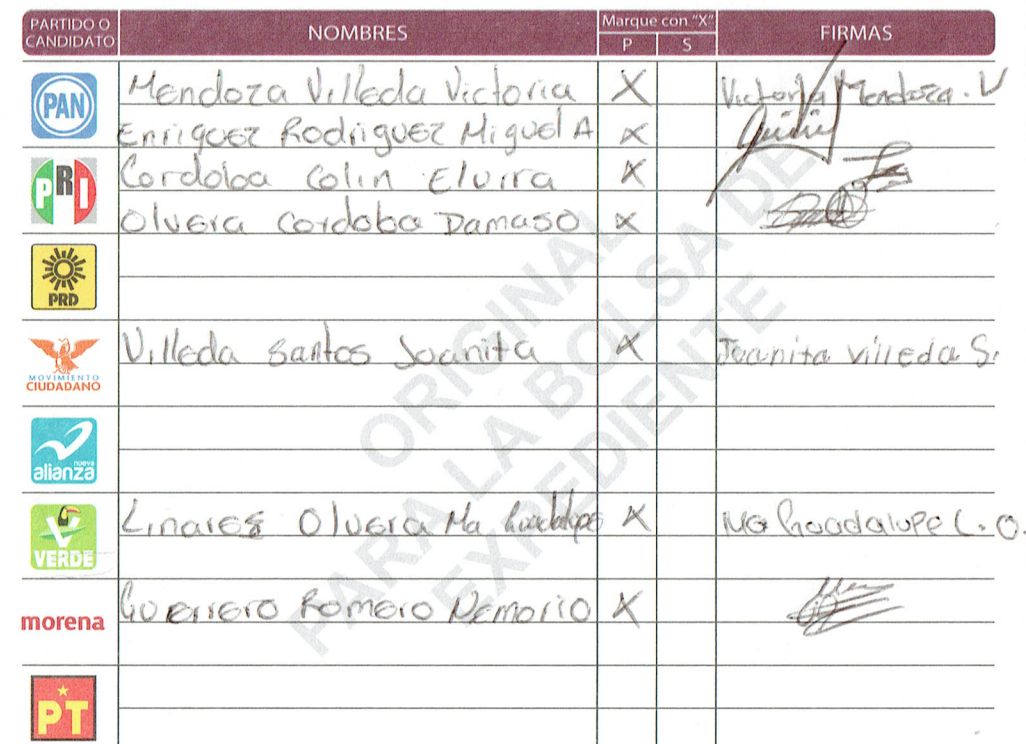 PARTIDO O CANDIDATO NOMBRES Marque con "X" P S FIRMAS
PAN Mendoza Villeda Victoria X Victoria Mendoza. V
Enriquez Rodriguez Miguel A X
PRI Cordoba Colin Elvira X
Olvera Cordoba Damaso X
PRD
MOVIMIENTO CIUDADANO Villeda Santos Juanita X Juanita Villeda S.
nueva alianza
VERDE Linares Olvera Ma Guadalupe X Ma Guadalupe L. O.
morena Guerrero Romero Nemorio X
PT
ORIGINAL
PARA LA BOLSA DE
EXPEDIENTE